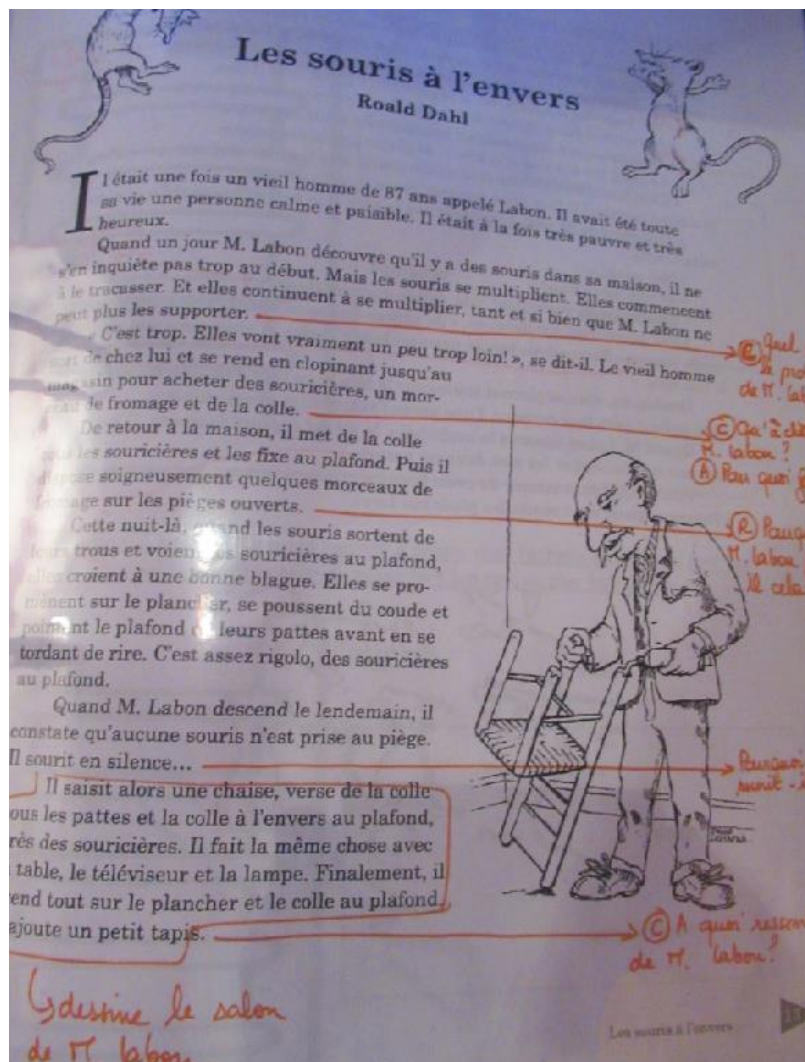 Les souris à l'envers
Roald Dahl
Il était une fois un vieil homme de 87 ans appelé Labon. Il avait été toute
sa vie une personne calme et paisible. Il était à la fois très pauvre et très
heureux.
Quand un jour M. Labon découvre qu'il y a des souris dans sa maison, il ne
s'en inquiète pas trop au début. Mais les souris se multiplient. Elles commencent
à le tracasser. Et elles continuent à se multiplier, tant et si bien que M. Labon ne
peut plus les supporter.
« C'est trop. Elles vont vraiment un peu trop loin! », se dit-il. Le vieil homme
sort de chez lui et se rend en clopinant jusqu'au
magasin pour acheter des souricières, un mor-
ceau de fromage et de la colle.
De retour à la maison, il met de la colle
sous les souricières et les fixe au plafond. Puis il
dispose soigneusement quelques morceaux de
fromage sur les pièges ouverts.
Cette nuit-là, quand les souris sortent de
leurs trous et voient les souricières au plafond,
elles croient à une bonne blague. Elles se pro-
mènent sur le plancher, se poussent du coude et
pointent le plafond de leurs pattes avant en se
tordant de rire. C'est assez rigolo, des souricières
au plafond.
Quand M. Labon descend le lendemain, il
constate qu'aucune souris n'est prise au piège.
Il sourit en silence...
Il saisit alors une chaise, verse de la colle
ous les pattes et la colle à l'envers au plafond,
rès des souricières. Il fait la même chose avec
table, le téléviseur et la lampe. Finalement, il
end tout sur le plancher et le colle au plafond.
ajoute un petit tapis.
C quel
le pro
de M. lab
C Qu'a
M. labon?
A Pour quoi
R Pourq
M. labon
il cela
Pourquoi
sourit-
C A quoi ressem
de M. labon?
dessine le salon
de M labon
Les souris à l'envers
13